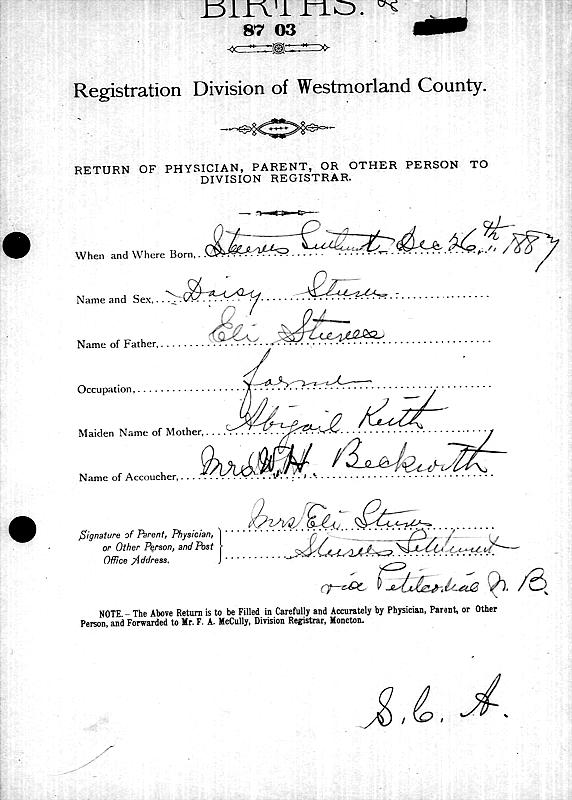 BIRTHS.
87 03
Registration Division of Westmorland County.
RETURN OF PHYSICIAN, PARENT, OR OTHER PERSON TO
DIVISION REGISTRAR.
When and Where Born, Steeves Settlement Dec 26th, 1887
Name and Sex, Daisy Steeves
Name of Father, Eli Steeves
Occupation, farmer
Maiden Name of Mother, Abigail Keith
Name of Accoucher, Mrs W. H. Beckwith
Signature of Parent, Physician, or Other Person, and Post Office Address. Mrs Eli Steeves
Steeves Settlement
via Petitcodiac N. B.
NOTE.– The Above Return is to be Filled in Carefully and Accurately by Physician, Parent, or Other
Person, and Forwarded to Mr. F. A. McCully, Division Registrar, Moncton.
S. C. A.